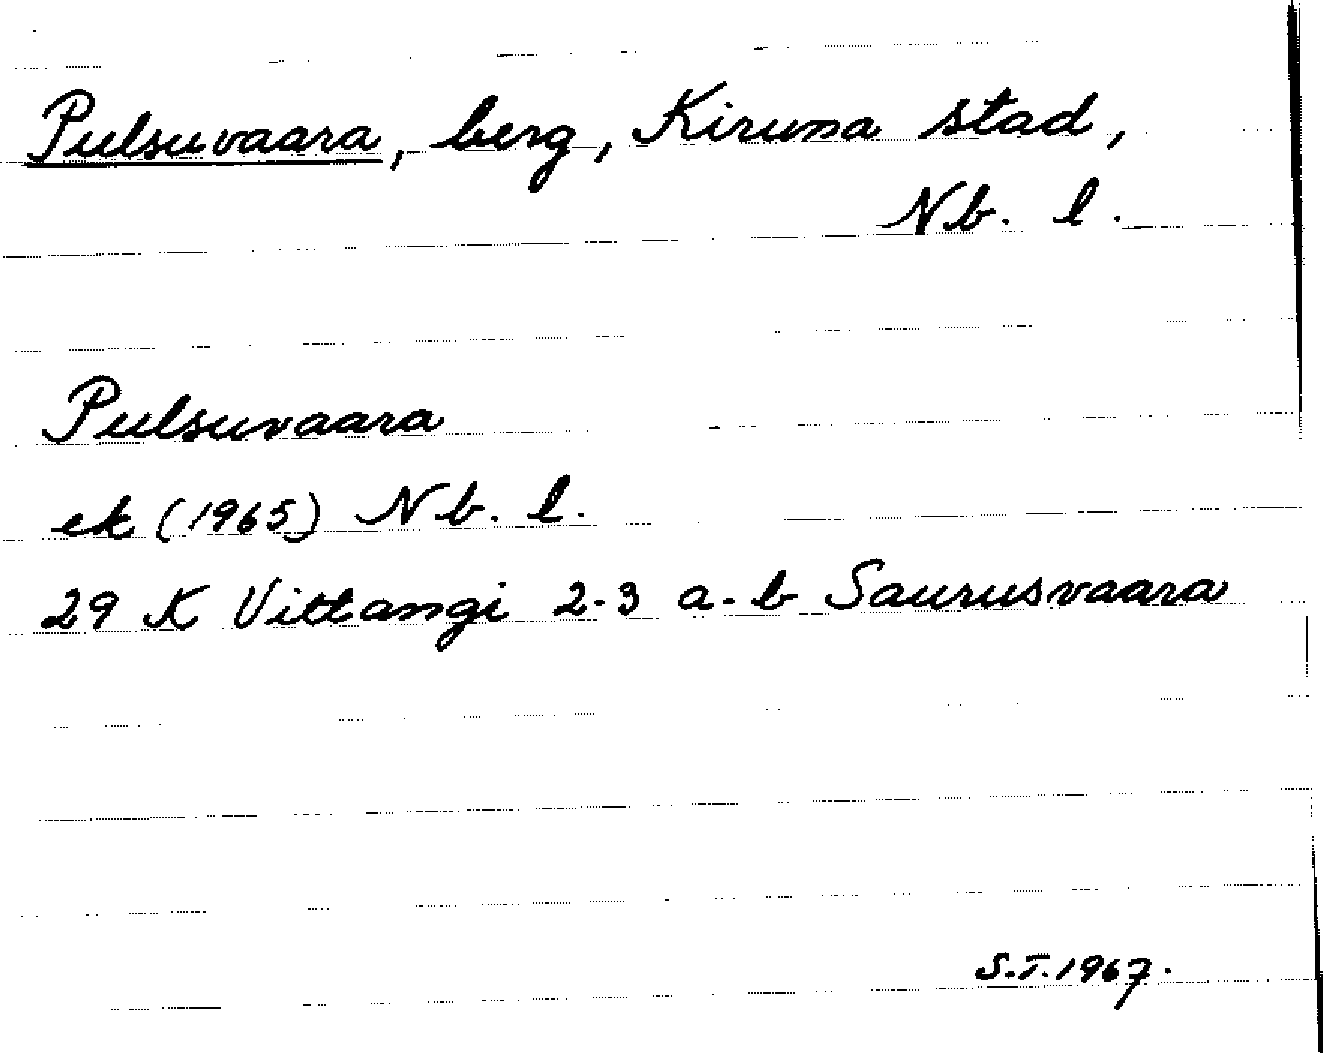 Pulsuvaara, berg, Kiruna stad,
Nb. l.
Pulsuvaara
ek (1965) Nb. l.
29 K Vittangi 2-3 a-b Saurusvaara
S.T. 1967.